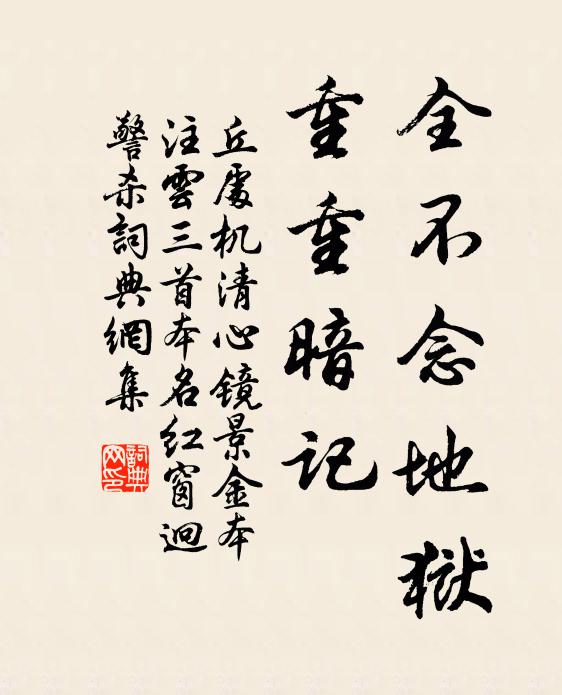 全不念地獄
重重暗记
丘處机清心镜景金本
注雲三首本名红窗迥
警杀詞典網集
詞典网印